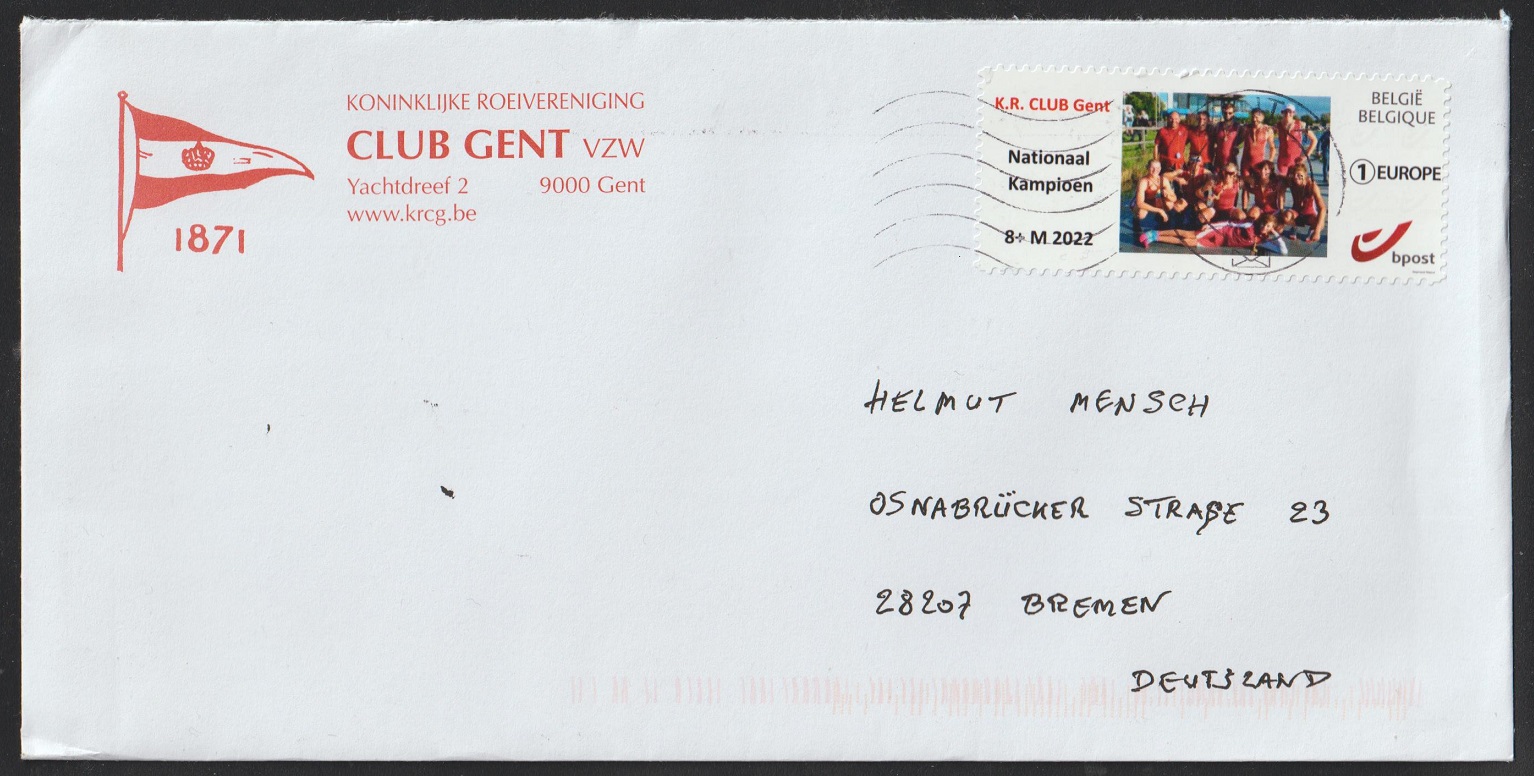 KONINKLIJKE ROEIVERENIGING
CLUB GENT VZW
Yachtdreef 2 9000 Gent
www.krcg.be
1871
K.R. CLUB Gent
Nationaal
Kampioen
8+ M 2022
BELGIË
BELGIQUE
1 EUROPE
bpost
HELMUT MENSCH
OSNABRÜCKER STRAßE 23
28207 BREMEN
DEUTSLAND